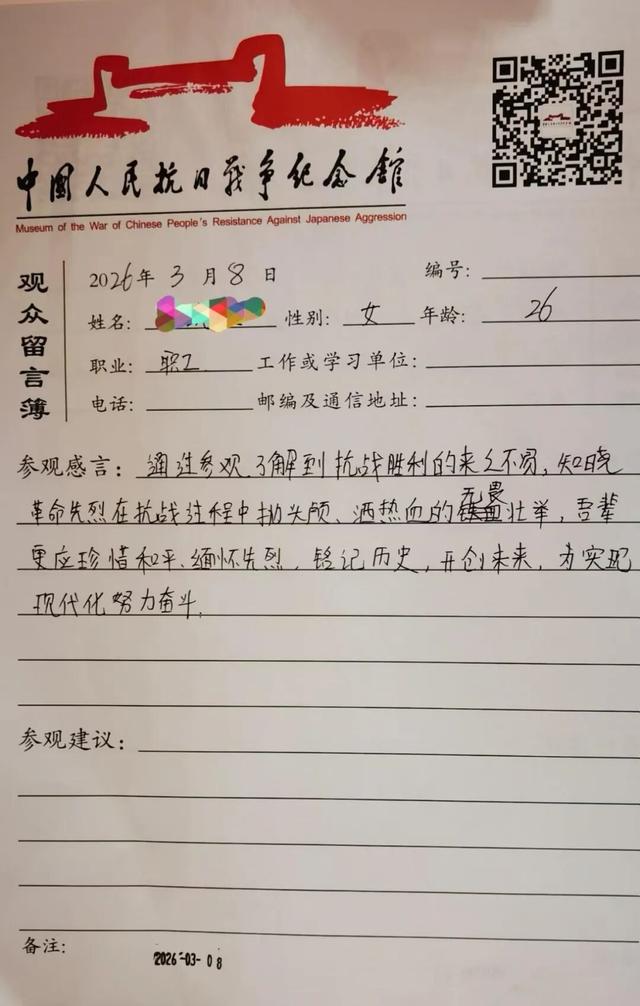 中国人民抗日战争纪念馆
Museum of the War of Chinese People's Resistance Against Japanese Aggression
观众留言薄
2026年 3 月 8 日 编号:
姓名: 性别: 女 年龄: 26
职业: 职工 工作或学习单位:
电话: 邮编及通信地址:
参观感言: 通过参观了解到抗战胜利的来之不易,知晓
无畏
革命先烈在抗战过程中抛头颅、洒热血的壮举,吾辈
更应珍惜和平、缅怀先烈,铭记历史,开创未来,为实现
现代化努力奋斗.
参观建议:
备注:
2026-03-08